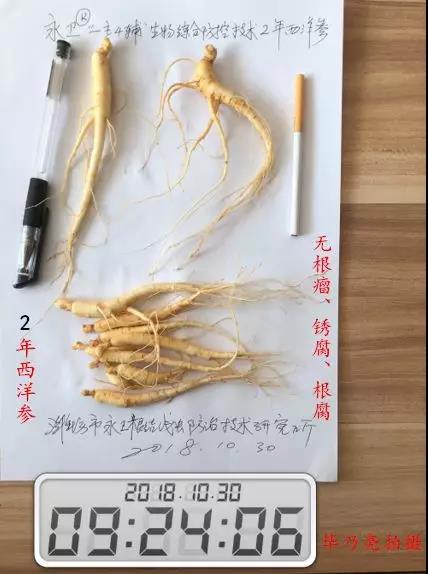 永卫® 一主4辅 生物综合防控技术2年西洋参
无根瘤、锈腐、根腐
2年西洋参
潍坊市永卫根结线虫防治技术研究所
2018.10.30
2018.10.30
09:24:06
毕乃亮拍摄